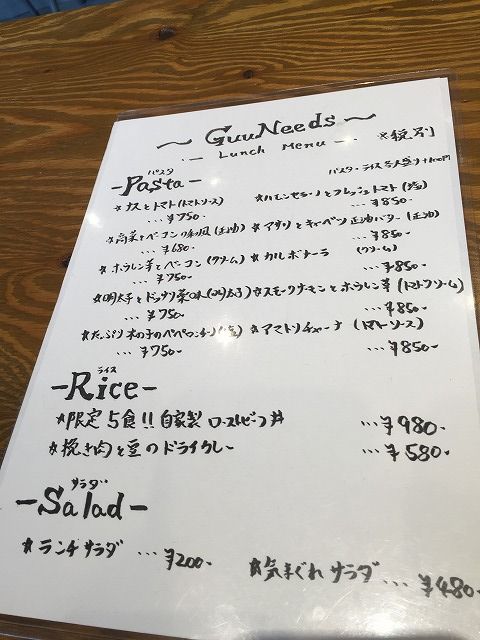 ～ GuuNeeds ～
-- Lunch Menu -- ※税別
パスタ
-Pasta-
パスタ・ライス 大盛り+100円
☆ナスとトマト(トマトソース)
...¥750-
☆ハモンセラーノとフレッシュトマト(塩)
...¥850-
☆高菜とベーコン 和風(正油)
...¥680-
☆アサリとキャベツ 正油バター(正油)
...¥850-
☆ホウレン草とベーコン(クリーム)
...¥750-
☆カルボナーラ (クリーム)
...¥850-
☆明太子と
...¥750-
☆スモークサーモンとホウレン草(トマトクリーム)
...¥850-
☆たっぷり木の子のペペロンチーノ(塩)
...¥750-
☆アマトリチャーナ (トマトソース)
...¥850-
ライス
-Rice-
☆限定5食!!自家製 ローストビーフ丼 ...¥980-
☆挽き肉と豆のドライカレー ...¥580-
サラダ
-Salad-
☆ランチサラダ ...¥200-
☆気まぐれサラダ...¥480-